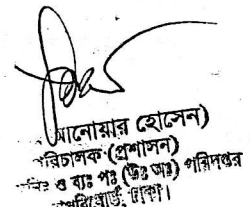 আনোয়ার হোসেন)
পরিচালক (প্রশাসন)
ও ব্যঃ পঃ (উঃ অঃ) পরিদপ্তর
ঢাকা।